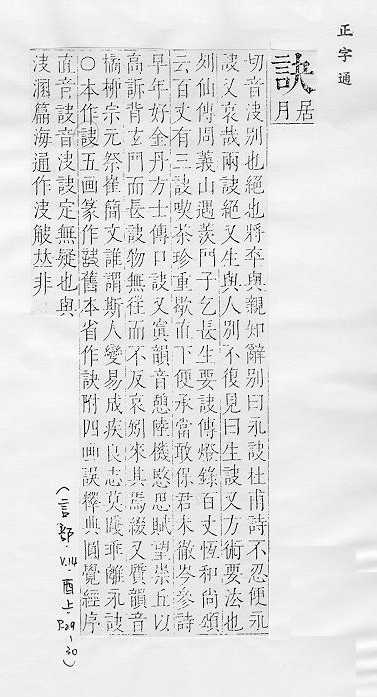 正字通
訣
居月
切音決別也絕也將卒與親知辭別曰永訣杜甫詩不忍便永
訣又哀哉兩訣絕又生與人別不復見曰生訣又方術要法也
列仙傳周義山遇羨門子乞長生要訣傳燈錄百丈恆和尚頌
云百丈有三訣喫茶珍重歇直下便承當敢保君未徹岑參詩
早年好金丹方士傳口訣又寘韻音憩陸機愍思賦望崇丘以
高訴背玄門而長訣物無往而不反哀來其焉綴又質韻音
橘栁宗元祭崔簡文誰謂斯人變易成疾良志莫踐乖離永訣
〇本作訣五画篆作舊本省作訣附四画誤釋典圓覺經序
直音訣音決訣定無疑也與
決溷篇海通作決觖非
(言部, V.14, 酉上, P.29-30)